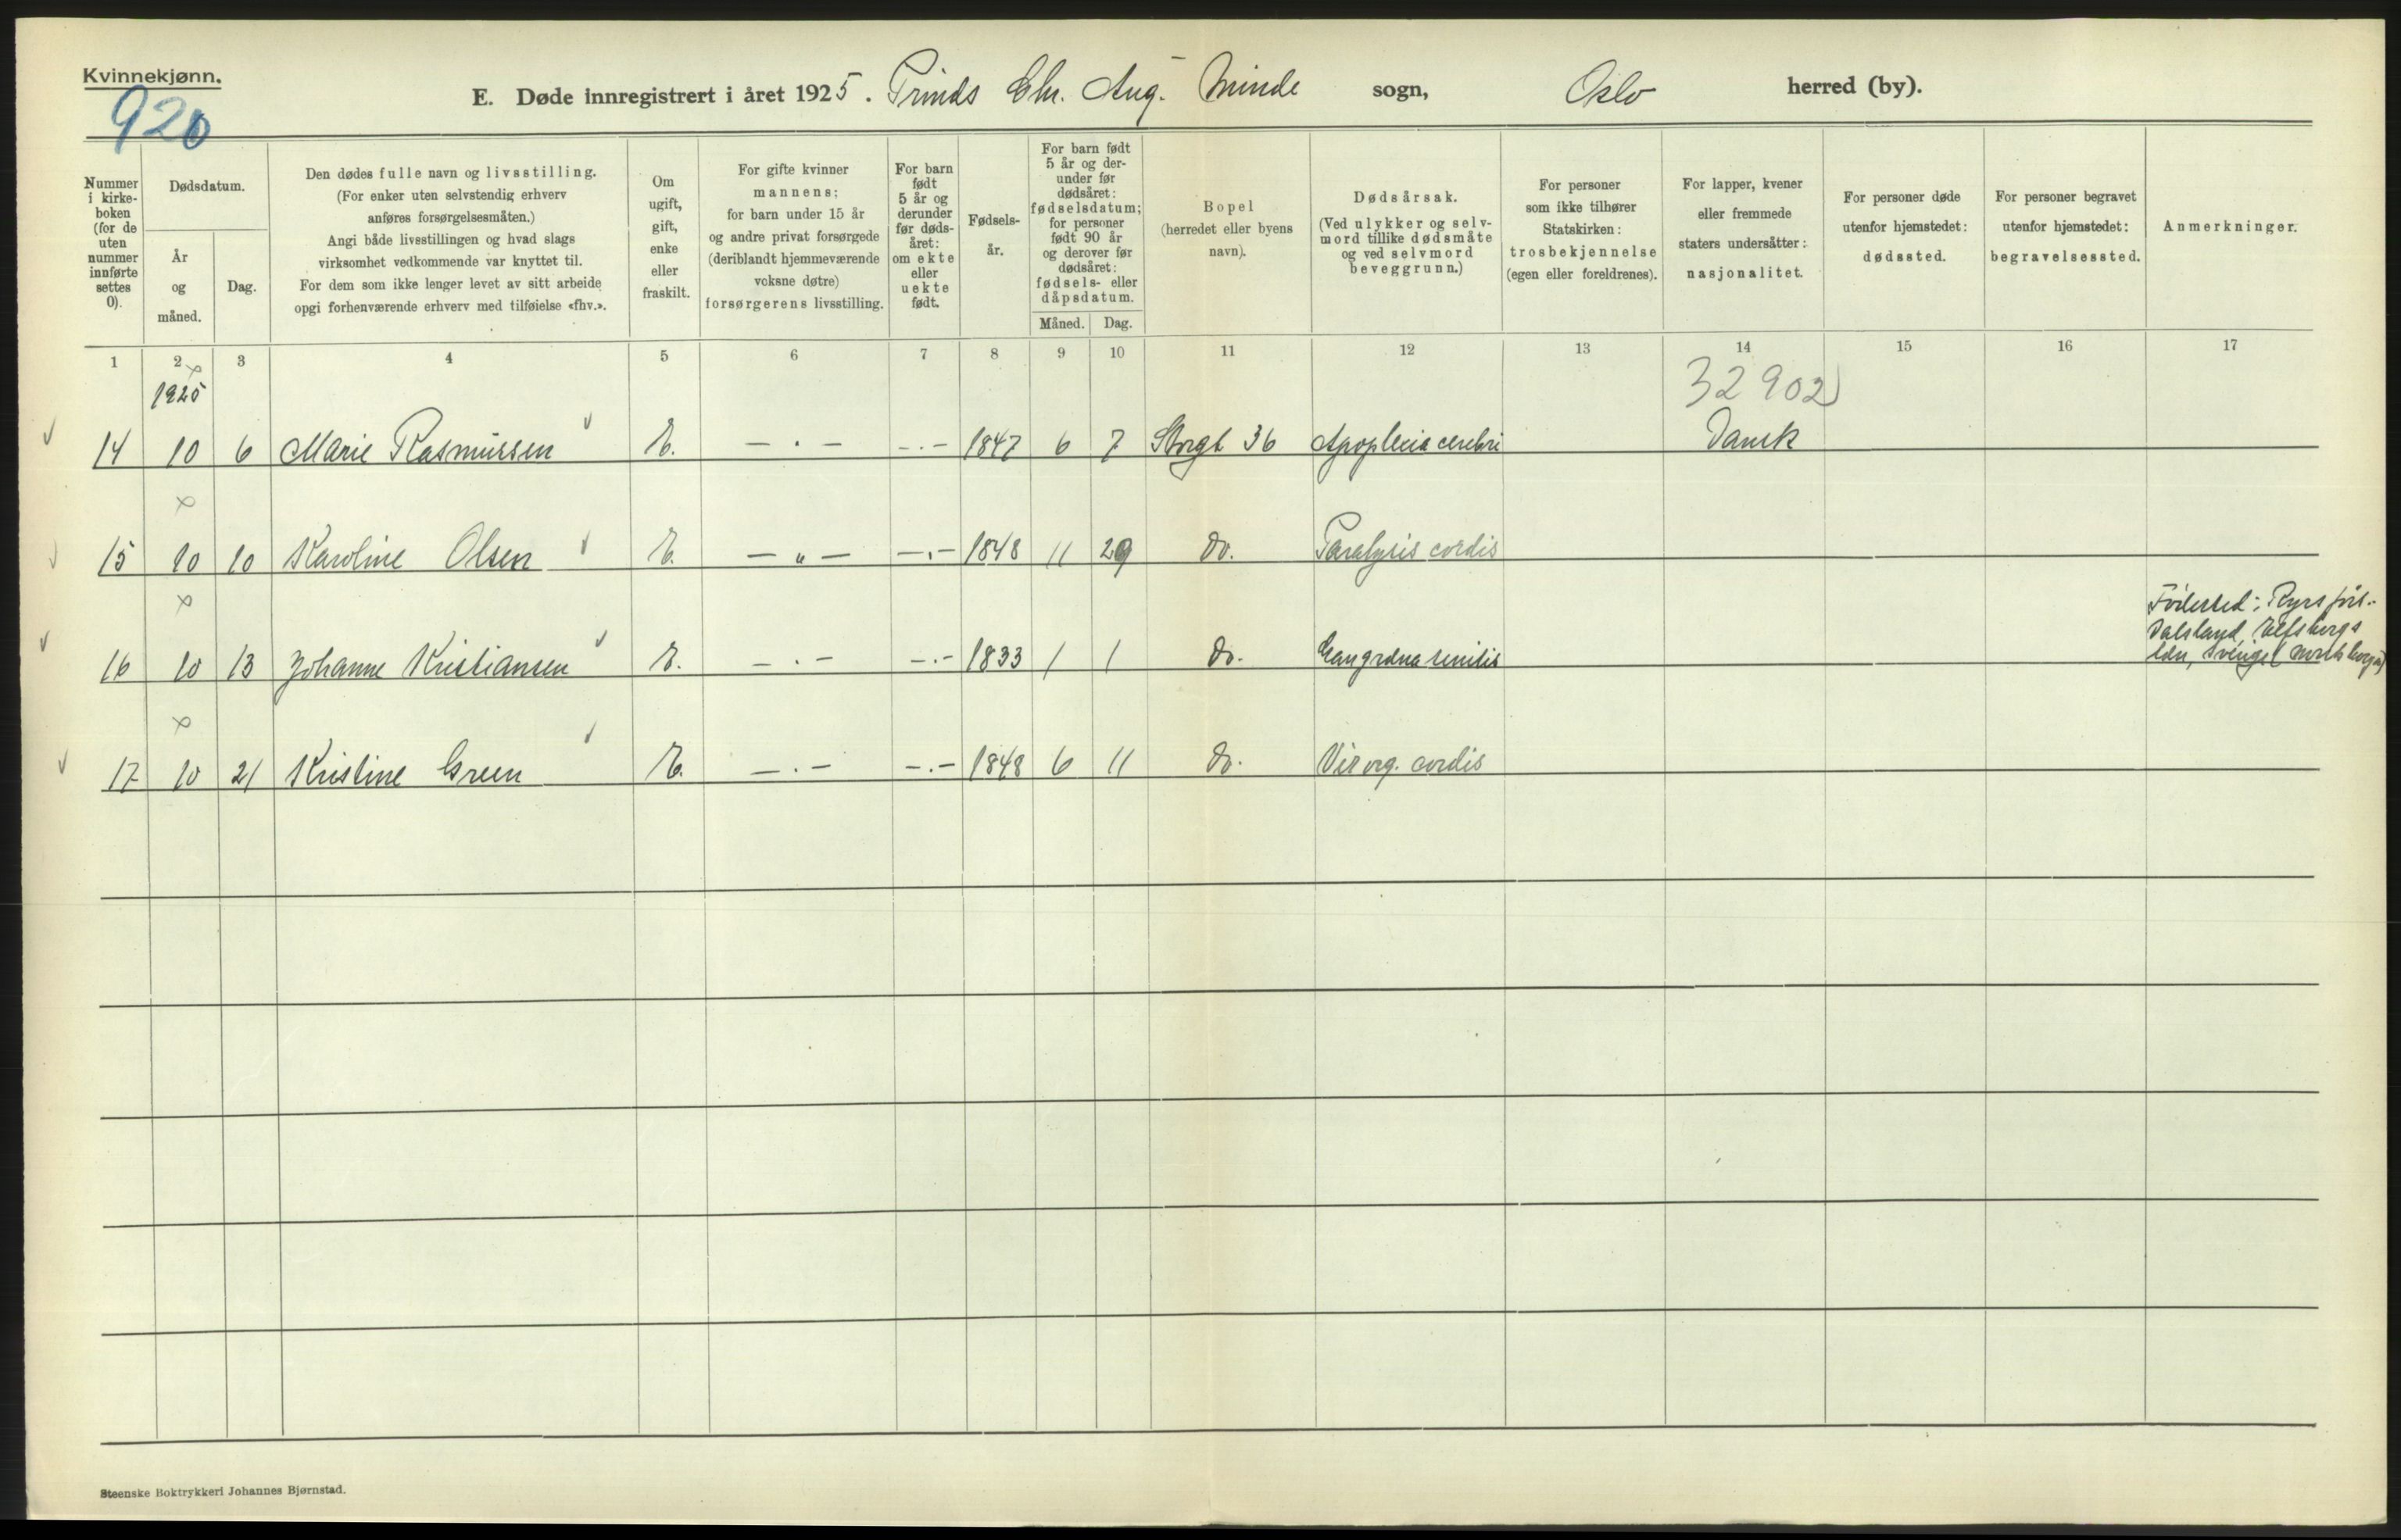 Kvinnekjønn.
920
E. Døde innregistrert i året 1925. Prinds Chr. Aug. Minde sogn, Oslo herred (by).
Nummer
i kirke-
boken
(for de
uten
nummer
innførte
settes
0).
Dødsdatum.
År
og
måned.
Dag.
Den dødes fulle navn og livsstilling.
(For enker uten selvstendig erhverv
anføres forsørgelsesmåten.)
Angi både livsstillingen og hvad slags
virksomhet vedkommende var knyttet til.
For dem som ikke lenger levet av sitt arbeide
opgi forhenværende erhverv med tilføielse «fhv.».
Om
ugift,
gift,
enke
eller
fraskilt.
For gifte kvinner
mannens;
for barn under 15 år
og andre privat forsørgede
(deriblandt hjemmeværende
voksne døtre)
forsørgerens livsstilling.
For barn
født
5 år og
derunder
før døds-
året:
om ekte
eller
uekte
født.
Fødsels-
år.
For barn født
5 år og der-
under før
dødsåret:
fødselsdatum;
for personer
født 90 år
og derover før
dødsåret:
fødsels- eller
dåpsdatum.
Måned. Dag.
Bopel
(herredet eller byens
navn).
Dødsårsak.
(Ved ulykker og selv-
mord tillike dødsmåte
og ved selvmord
beveggrunn.)
For personer
som ikke tilhører
Statskirken:
trosbekjennelse
(egen eller foreldrenes).
For lapper, kvener
eller fremmede
staters undersåtter:
nasjonalitet.
For personer døde
utenfor hjemstedet:
dødssted.
For personer begravet
utenfor hjemstedet:
begravelsessted.
Anmerkninger.
1 2 3 4 5 6 7 8 9 10 11 12 13 14 15 16 17
1925 32902
14 10 6 Marie Rasmussen E. — . — - . - 1847 6 7 Storgt 36 Apoplexia cerebri Dansk
15 10 10 Karoline Olsen E. — " — — . - 1848 11 29 Do. Paralysis cordis
16 10 13 Johanne Kristiansen E. — . — - . - 1833 1 1 Do. Gangræna senilis
Födested: Ryrs
Dalsland, Elfsborgs
län, Sverige
17 10 21 Kristine Green E. — . — - . - 1848 6 11 Do. Vit org. cordis
Steenske Boktrykkeri Johannes Bjørnstad.